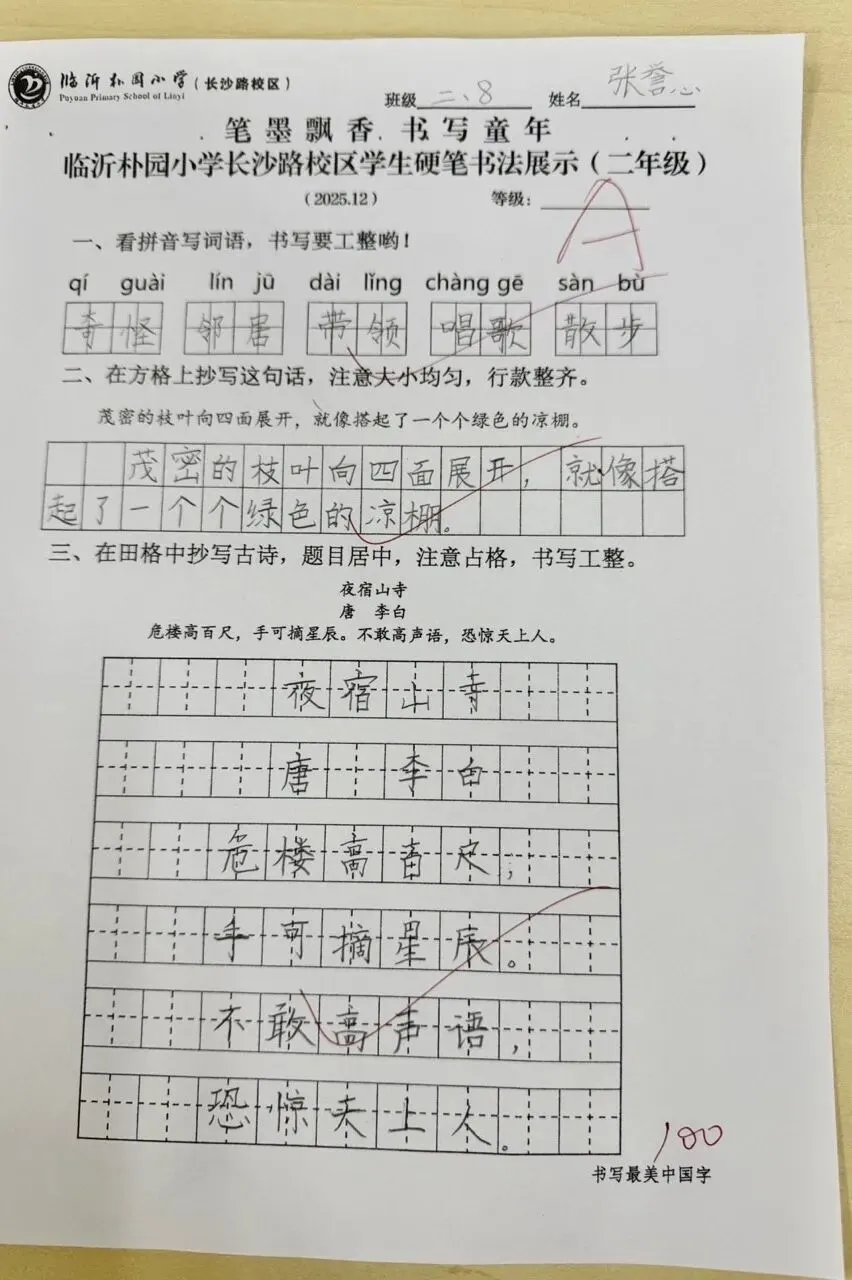 临沂朴园小学(长沙路校区)
Puyuan Primary School of Linyi
班级 二、8 姓名 张誉心
笔墨飘香 书写童年
临沂朴园小学长沙路校区学生硬笔书法展示(二年级)
(2025.12) 等级: A
一、看拼音写词语,书写要工整哟!
qí guài lín jū dài lǐng chàng gē sàn bù
奇怪 邻居 带领 唱歌 散步
二、在方格上抄写这句话,注意大小均匀,行款整齐。
茂密的枝叶向四面展开,就像搭起了一个个绿色的凉棚。
茂密的枝叶向四面展开,就像搭
起了一个个绿色的凉棚。
三、在田格中抄写古诗,题目居中,注意占格,书写工整。
夜宿山寺
唐 李白
危楼高百尺,手可摘星辰。不敢高声语,恐惊天上人。
夜宿山寺
唐 李白
危楼高百尺,
手可摘星辰。
不敢高声语,
恐惊天上人。
100
书写最美中国字